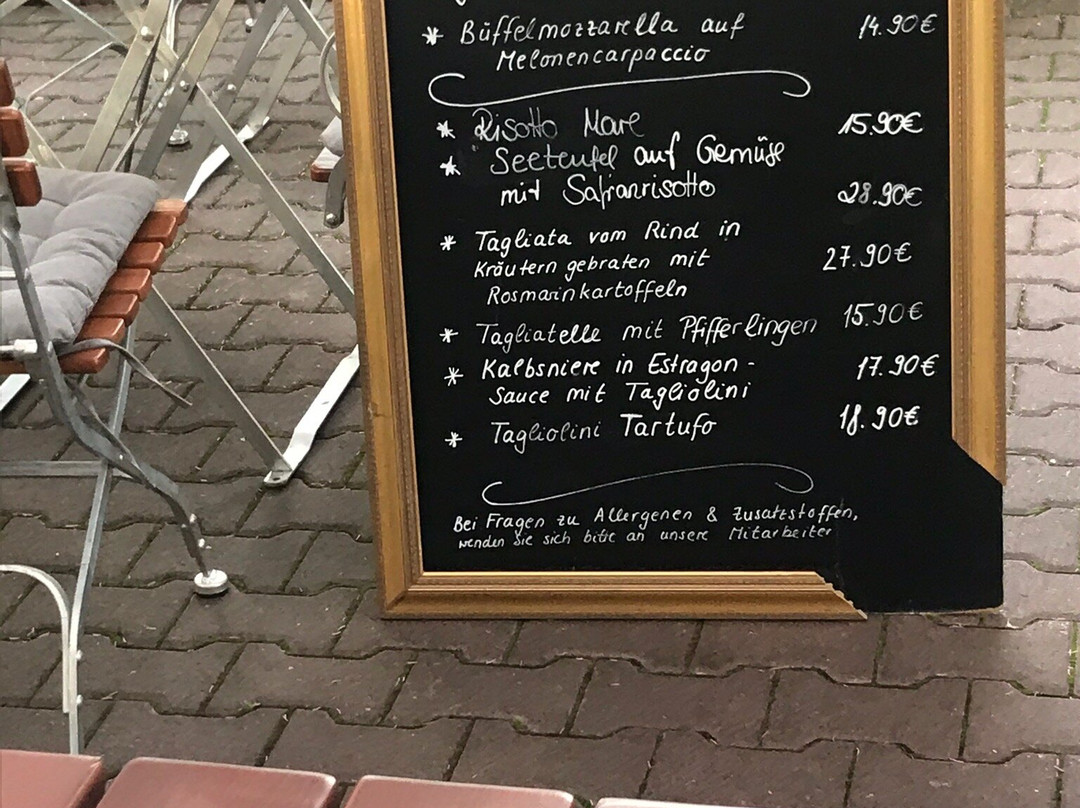 * Büffelmozzarella auf 14.90€
Melonencarpaccio
* Risotto Mare 15.90€
* Seeteufel auf Gemüse
mit Safranrisotto 28.90€
* Tagliata vom Rind in
Kräutern gebraten mit 27.90€
Rosmarinkartoffeln
* Tagliatelle mit Pfifferlingen 15.90€
* Kalbsniere in Estragon- 17.90€
Sauce mit Tagliolini
* Tagliolini Tartufo 18.90€
Bei Fragen zu Allergenen & Zusatzstoffen,
wenden Sie sich bitte an unsere Mitarbeiter